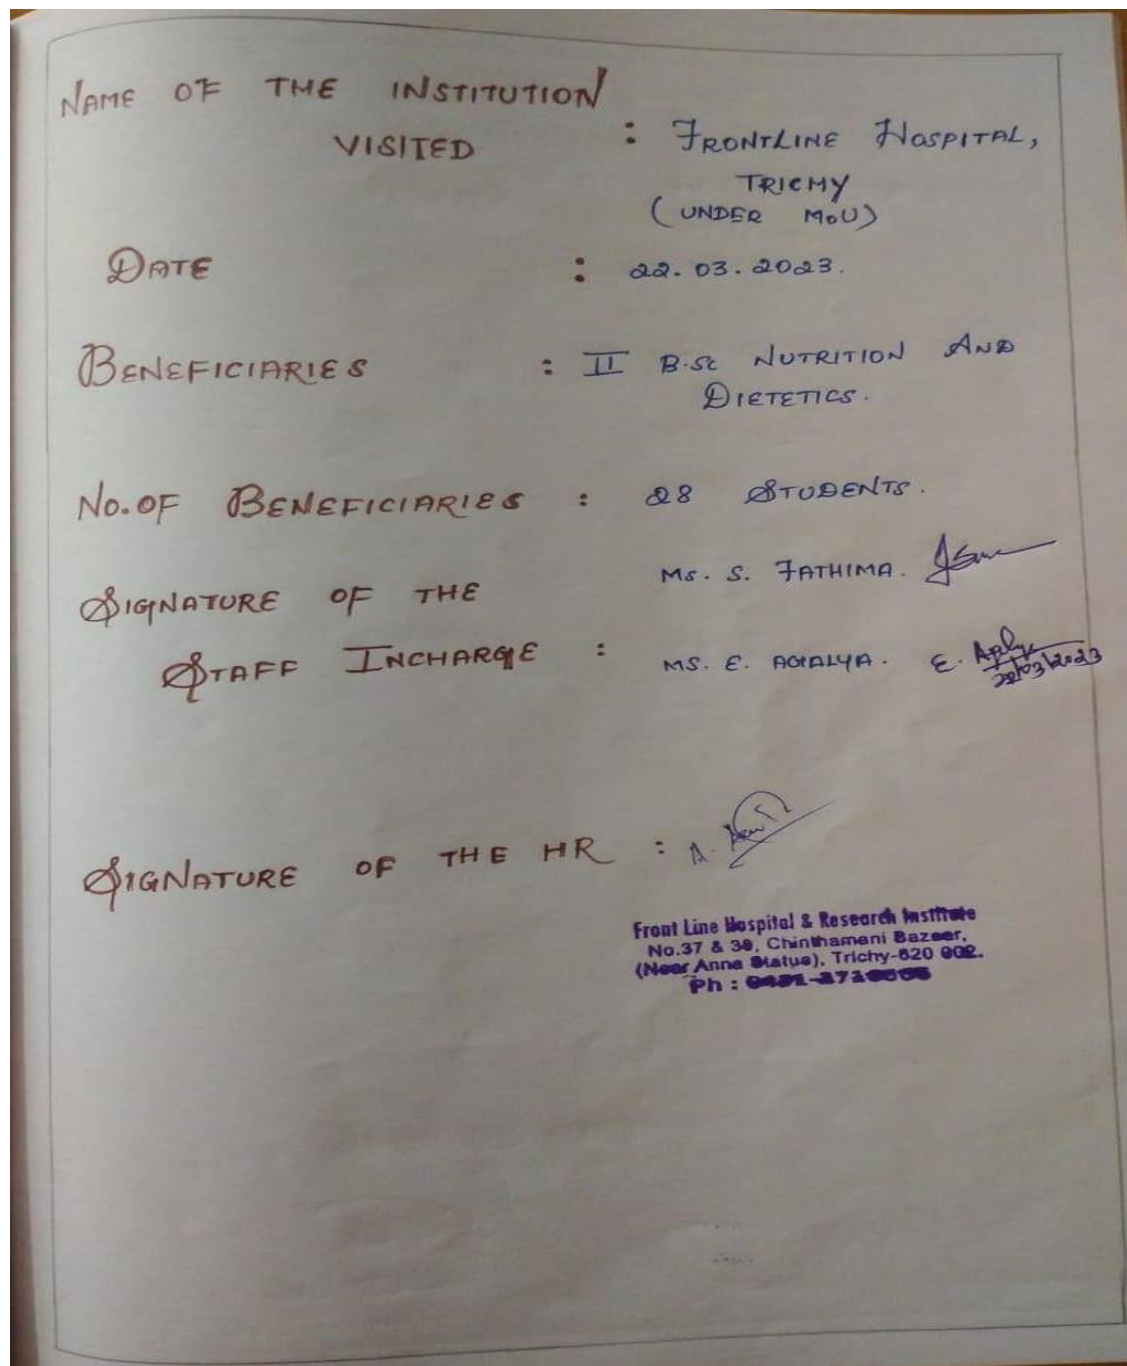 NAME OF THE INSTITUTION
VISITED : FRONTLINE HOSPITAL,
TRICHY
(UNDER MoU)
DATE : 22.03.2023.
BENEFICIARIES : II B.Sc NUTRITION AND
DIETETICS.
No. OF BENEFICIARIES : 28 STUDENTS.
SIGNATURE OF THE MS. S. FATHIMA.
STAFF INCHARGE : MS. E. AGALYA. E.
22/03/2023
SIGNATURE OF THE HR : A.
Front Line Hospital & Research Institute
No.37 & 39, Chinthamani Bazaar,
(Near Anna Statue), Trichy-620 002.
Ph :